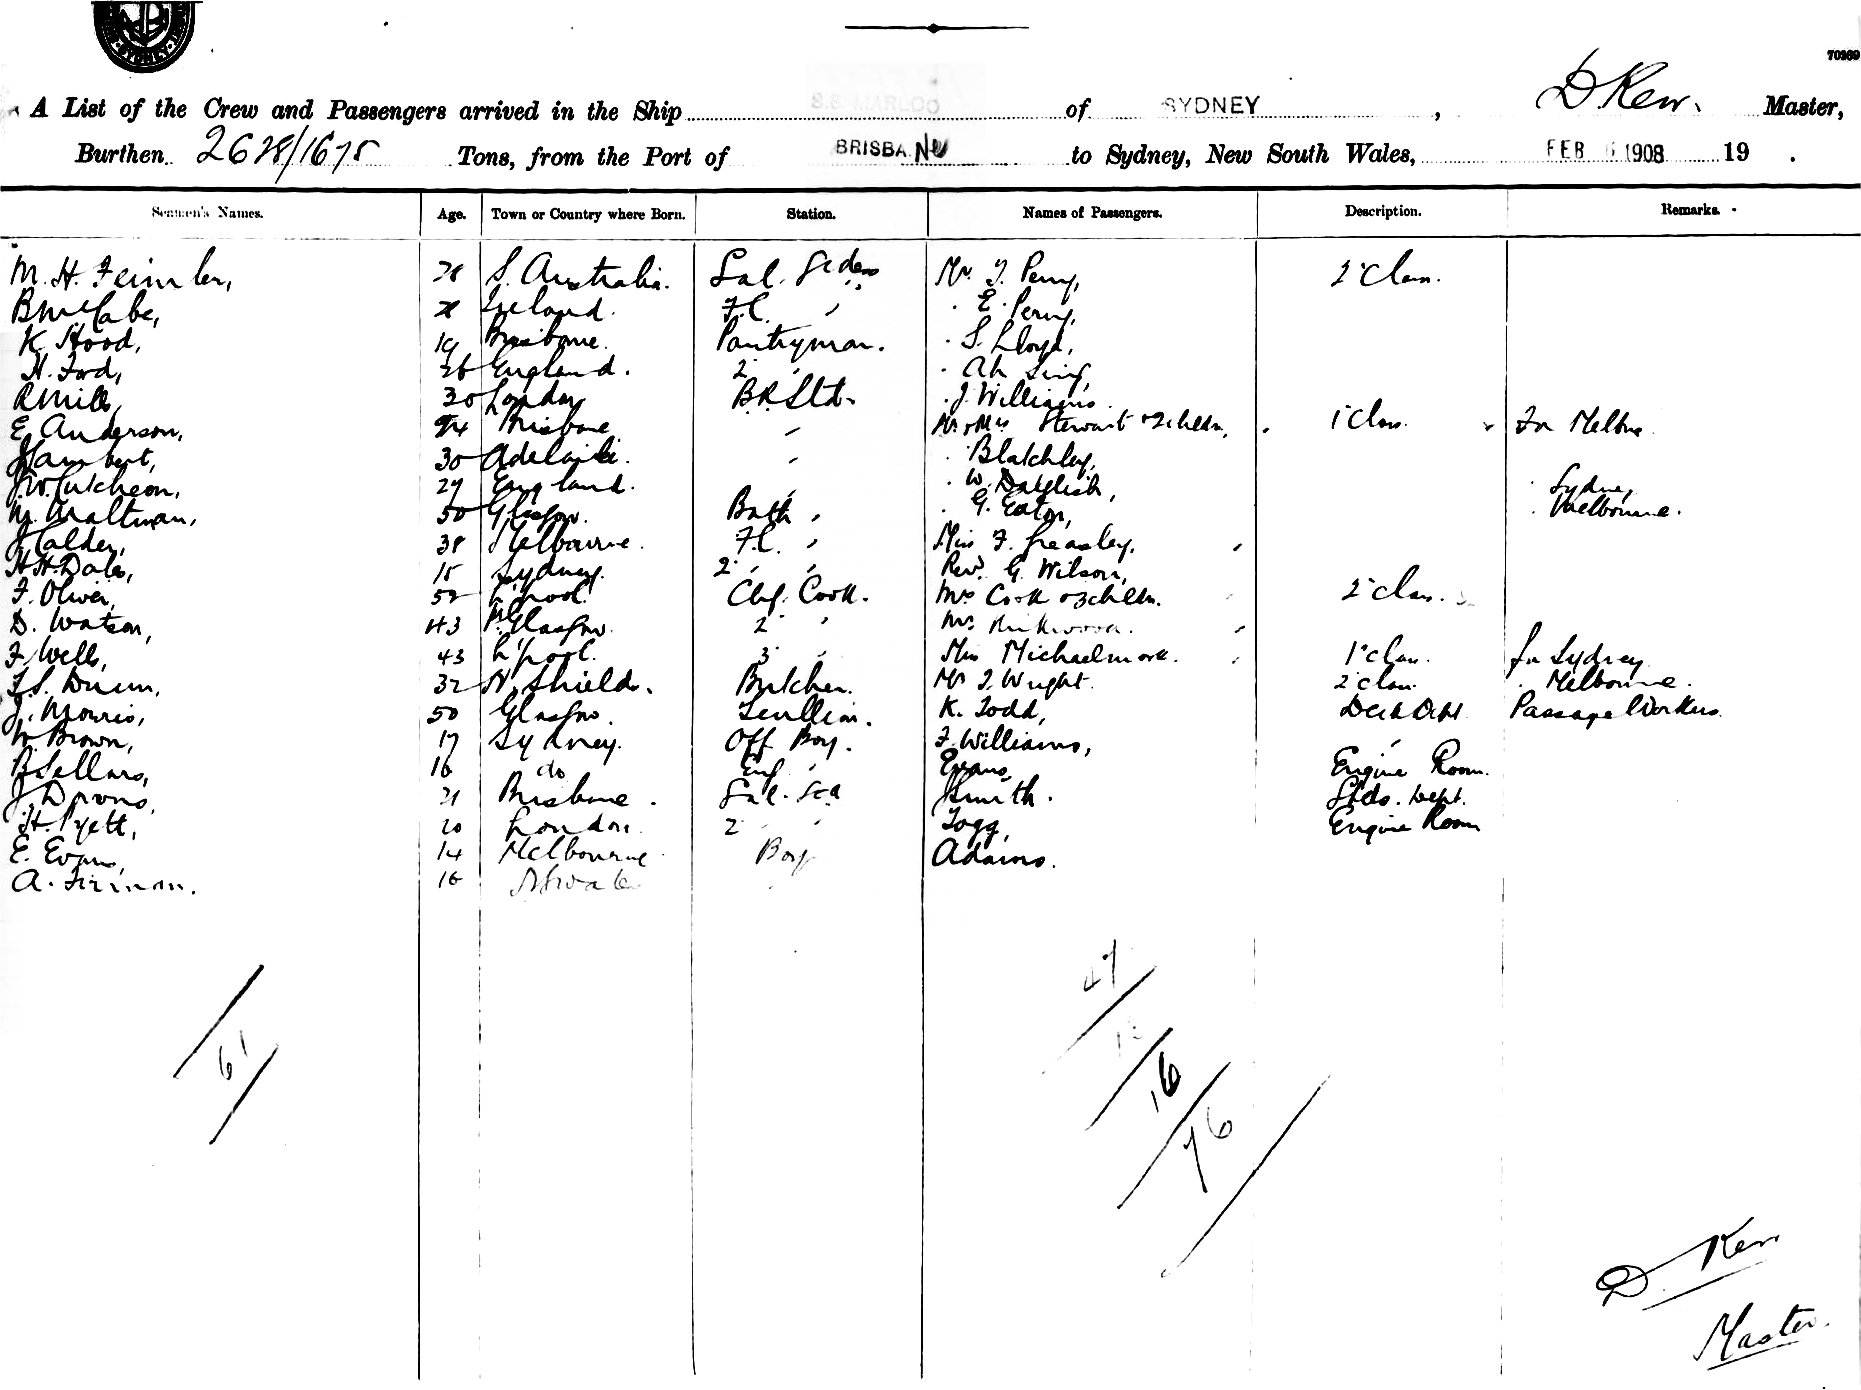 SYDNEY
70269
A List of the Crew and Passengers arrived in the Ship S.S. MARLOO of SYDNEY, D Kerr. Master,
Burthen 2628/1675 Tons, from the Port of BRISBANE to Sydney, New South Wales, FEB 1908 19 .
Seamen's Names. Age. Town or Country where Born. Station. Names of Passengers. Description. Remarks.
M. H. 28 S. Australia. Sal. Mr. J. Perry, 2 Class.
B McCabe, Ireland. F.C. " E. Perry,
K Hood, 19 Brisbane. Pantryman. " S. Lloyd,
H. Ford, 26 England. 2 " " Ah Sing,
R Mills, 30 London B.R. Std. " J. Williams.
E. Anderson, 24 Brisbane " Mr & Mrs Stewart & 2 chldn. 1 Class. For Melbne.
J Lambert, 30 Adelaide. " " Blatchley,
J. W. Cutcheon, 29 England. " " W. Dalglish, " Sydney
50 Glasgow. Bath " " G. Eaton, " Melbourne.
J Calder, 38 Melbourne. F.C. " Miss F. Greasley,
H. H. Dales, 15 Sydney. 2 " Revd. G. Wilson,
F. Oliver, 52 L'pool. Chf. Cook. Mrs Cook & 3 chldn. 2 Class.
D. Watson, 43 Pt. Glasgow. 2 " Mrs Kirkwood.
F. Wells, 43 L'pool. 3 " Miss Michaelmore. 1 Class. For Sydney
J. S. Dunn, 32 N. Shields. Butcher. Mr J. Wright. 2 Class. " Melbourne.
J. Morris, 50 Glasgow. Scullion. K. Todd, Deck Dept Passage Workers.
W. Brown, 17 Sydney. Off Boy. F. Williams, "
B Sellars, 16 do Eng " Evans, Engine Room.
21 Brisbane. Sal. J Smith. Stds. Dept.
H. Pyett, 20 London. 2 " Togg, Engine Room
E. Evans, 14 Melbourne Boy Adams.
A. Firman. 16 "
61
47
16
76
D. Kerr
Master.